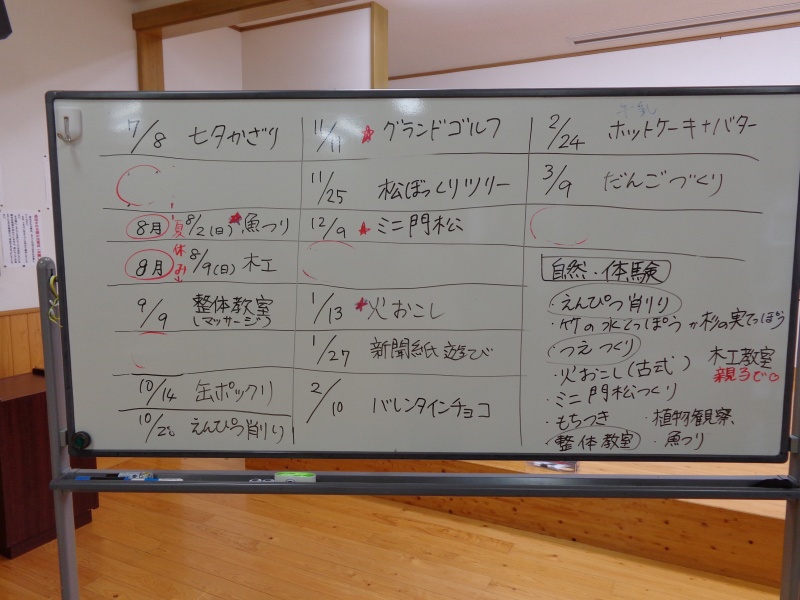 7/8 七夕かざり
8月 夏休み 8/2(日) ★魚つり
8月 8/9(日) 木工
9/9 整体教室
(マッサージ)
10/14 缶ポックリ
えんぴつ削り
11/11 ★グランドゴルフ
11/25 松ぼっくりツリー
12/9 ★ミニ門松
1/13 ★火おこし
1/27 新聞紙遊び
2/10 バレンタインチョコ
牛乳
2/24 ホットケーキ+バター
3/9 だんごづくり
自然・体験
・えんぴつ削り
・竹の水てっぽう か 杉の実てっぽう
・つえつくり
・火おこし(古式) 木工教室
親子で。
・ミニ門松つくり
・もちつき ・植物観察、
整体教室 ・魚つり